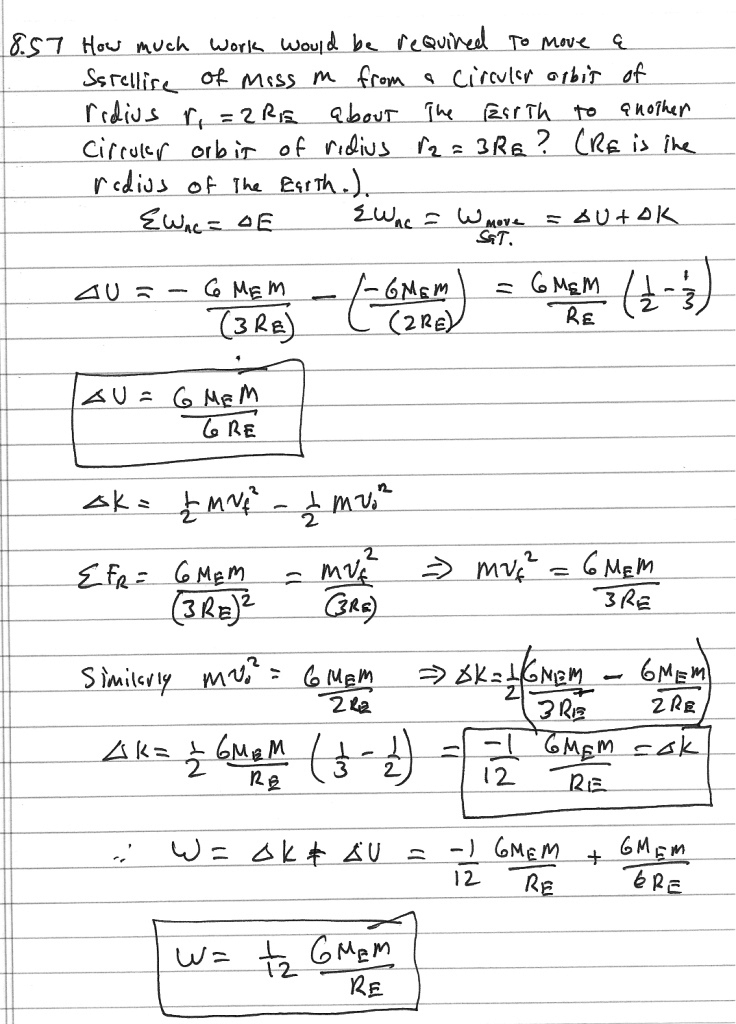 8.57 How much work would be required to move a
Satellite of Mass m from a circular orbit of
radius r₁ = 2RE about the Earth to another
Circular orbit of radius r₂ = 3RE? (RE is the
radius of the Earth.).
ΣWnc = ΔE ΣWnc = Wmove SAT. = ΔU + ΔK
ΔU = - GMEm/(3RE) - (-GMEm/(2RE)) = GMEm/RE (1/2 - 1/3)
ΔU = GMEm/6RE
ΔK = 1/2 mvf² - 1/2 mv₀²
ΣFR = GMEm/(3RE)² = mvf²/(3RE) ⇒ mvf² = GMEm/3RE
Similarly mv₀² = GMEm/2RE ⇒ ΔK = 1/2 (GMEm/3RE - GMEm/2RE)
ΔK = 1/2 GMEm/RE (1/3 - 1/2) = -1/12 GMEm/RE = ΔK
∴ W = ΔK + ΔU = -1/12 GMEm/RE + GMEm/6RE
W = 1/12 GMEm/RE